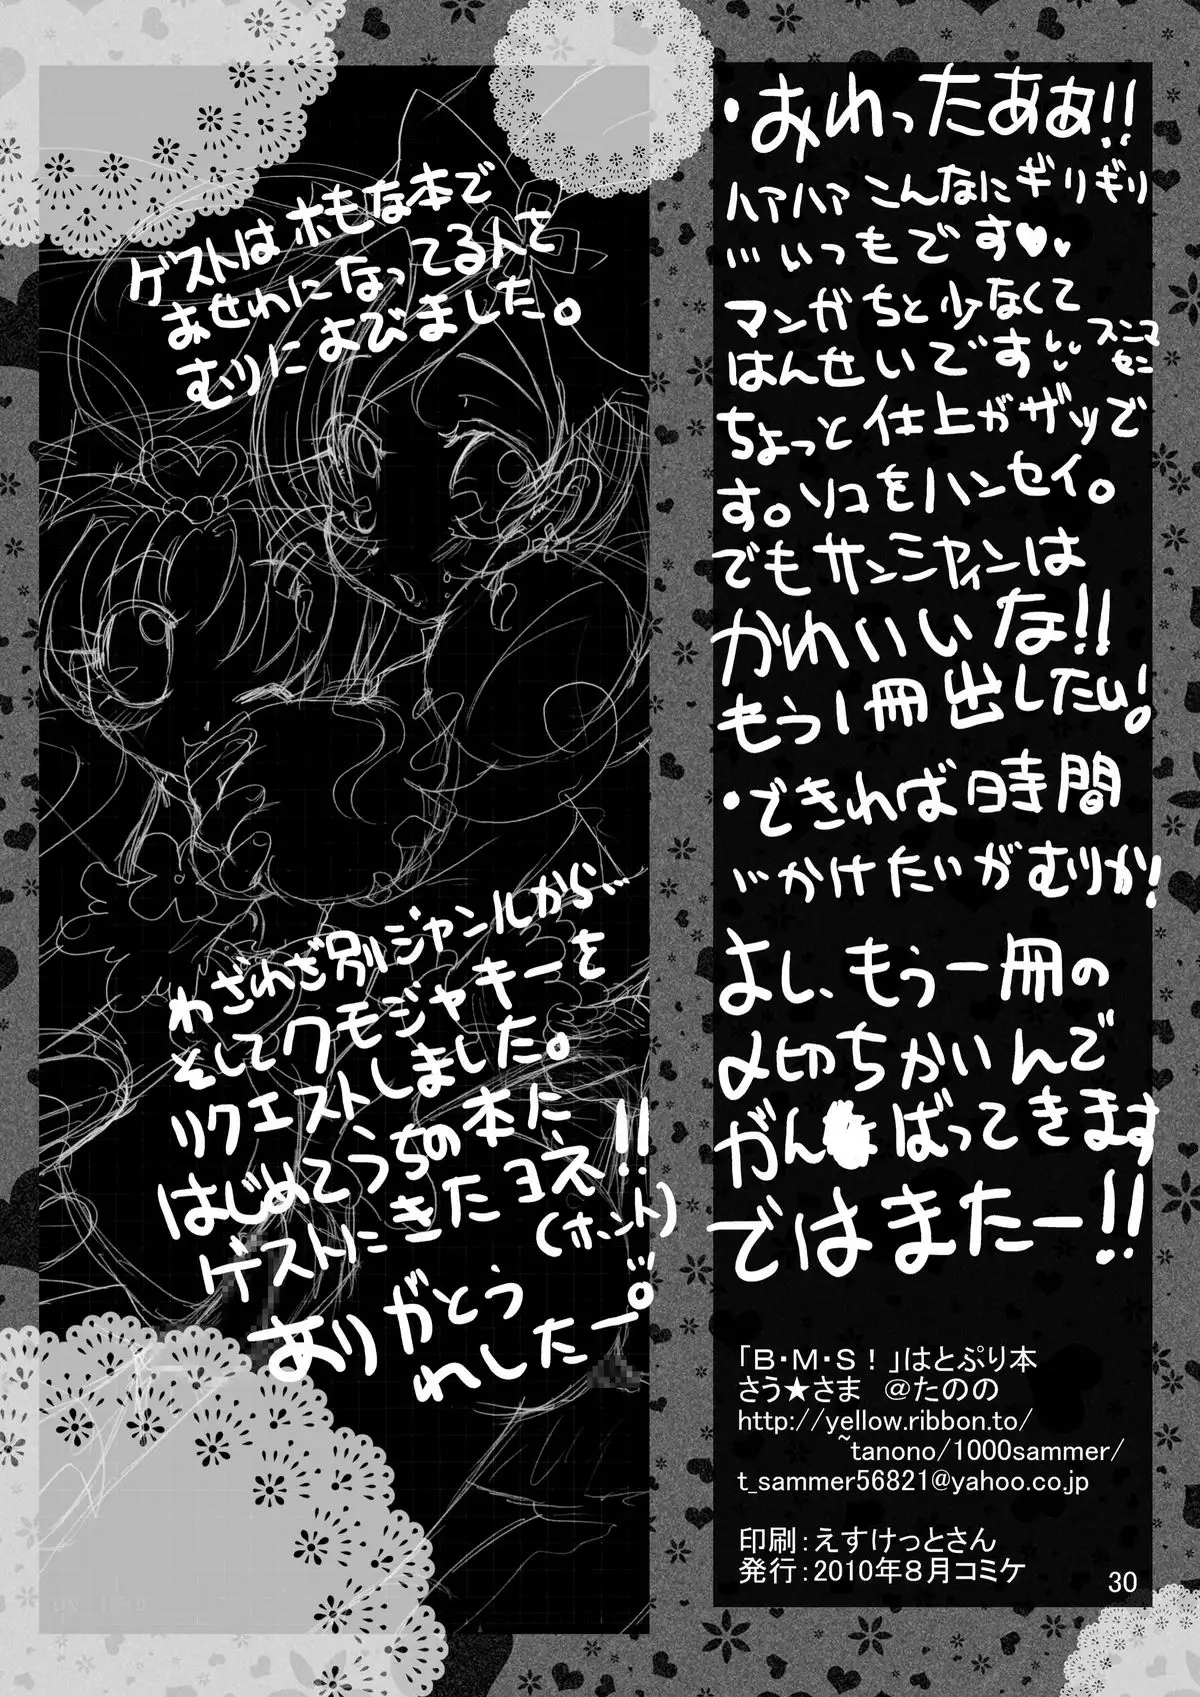 ・おわったあぁ!!
ハアハア こんなにギリギリ
…いつもです♥♥
マンガちと少なくて
はんせいです
スニマ
セニ
ちょっと仕上がザツで
す。ソコをハンセイ。
でもサンシャインは
かわいいな!!
もう1冊出したい!
・できれば時間
…かけたいがむりか!
よし、もう一冊の
〆切ちかいんで
がんばってきます
ではまたー!!
「B・M・S！」はとぷり本
さう★さま　＠たのの
http://yellow.ribbon.to/
~tanono/1000sammer/
t_sammer56821@yahoo.co.jp
印刷：えすけっとさん
発行：2010年８月コミケ
30
ゲストはホモな本で
おせわになってる人さ
むりによびました。
わざわざ別ジャンルから…
そしてクモジャキーを
リクエストしました。
はじめてうちの本に
ゲストにきたヨネ!!
(ホント)
ありがとう
れしたー。